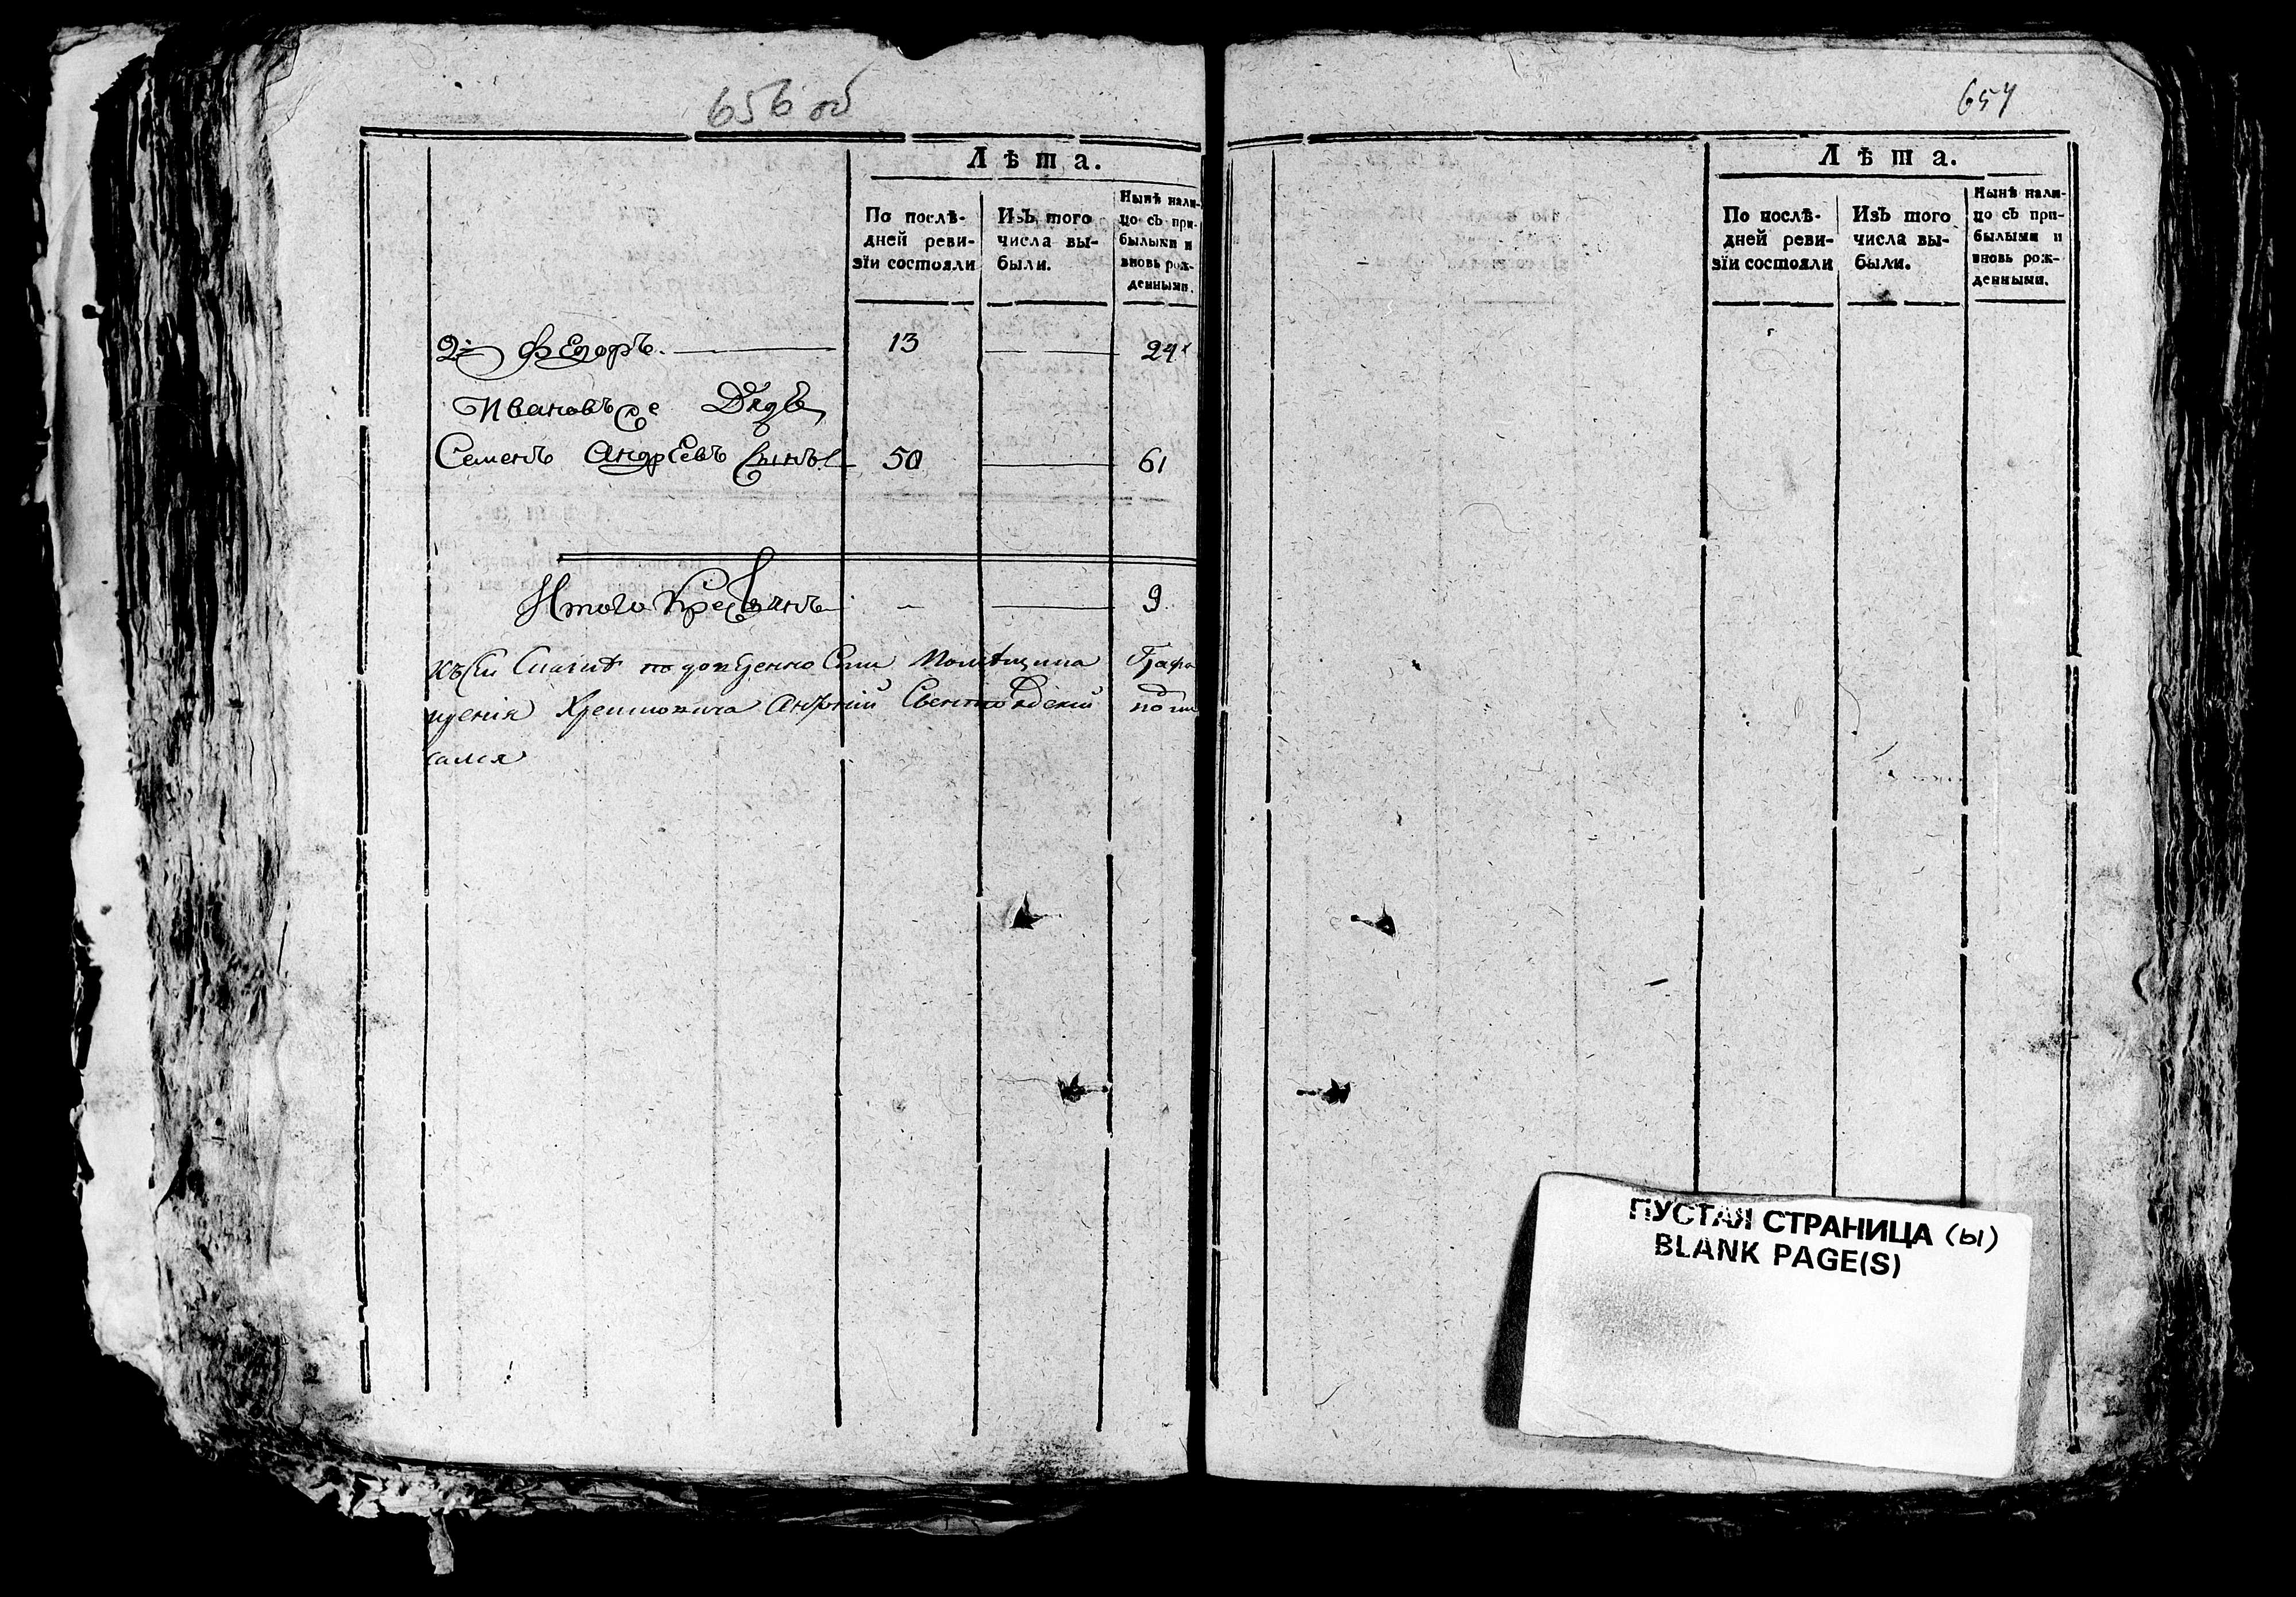 656 об
Лѣта.
По послѣ-
дней реви-
зїи состояли
Изъ того
числа вы-
были.
Нынѣ нали-
цо съ при-
былыми и
вновь рож-
денными.
2й Федоръ. 13 24
Ивановъ Дядя
Семенъ Андреевъ Сынъ 50 61
Итого Крестьянъ 9
Къ сей помѣщика Графа
Андрей подпи
сался
657
Лѣта.
По послѣ-
дней реви-
зїи состояли
Изъ того
числа вы-
были.
Нынѣ нали-
цо съ при-
былыми и
вновь рож-
денными.
ПУСТАЯ СТРАНИЦА (Ы)
BLANK PAGE(S)